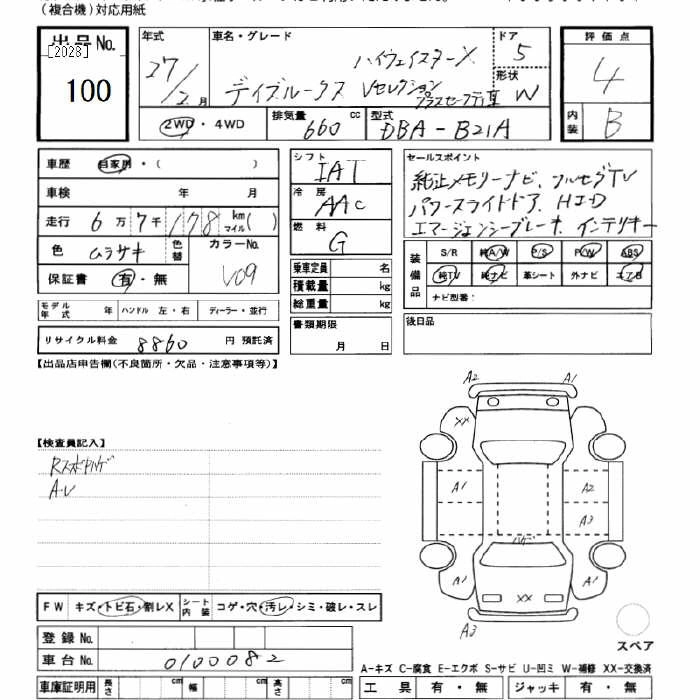 (複合機)対応用紙
出品No.
[2023]
100
年式
27/2月
車名・グレード
ハイウェイスターX
デイズルークス Vセレクション
プラスセーフティⅡ
ドア 5
形状 W
評価点
4
内装 B
2WD・4WD
排気量 660 cc
型式 DBA-B21A
車歴 自家用・( )
車検 年 月
走行 6万7千178 km マイル( )
色 ムラサキ 色替
カラーNo. V09
保証書 有・無
モデル年式 年 ハンドル 左・右 ディーラー・並行
リサイクル料金 8860 円 預託済
シフト IAT
冷房 AAC
燃料 G
乗車定員 名
積載量 kg
総重量 kg
書類期限
月 日
セールスポイント
純正メモリーナビ、フルセグTV
パワースライドドア、HID
エマージェンシーブレーキ、インテリキー
装備品
S/R 純A/W P/S P/W ABS
純TV 純ナビ 革シート 外ナビ エアB
ナビ型番:
後日品
【出品店申告欄(不良箇所・欠品・注意事項等)】
【検査員記入】
A・U
A2 A1
XX
A1 A2
A3
ハゲ
A1 A1
XX
A3
スペア
FW キズ・トビ石・割レX
シート内装 コゲ・穴・汚レ・シミ・破レ・スレ
登録No.
車台No. 0100082
車庫証明用 長さ cm 幅 cm 高さ cm
A-キズ C-腐食 E-エクボ S-サビ U-凹ミ W-補修 XX-交換済
工具 有・無 ジャッキ 有・無